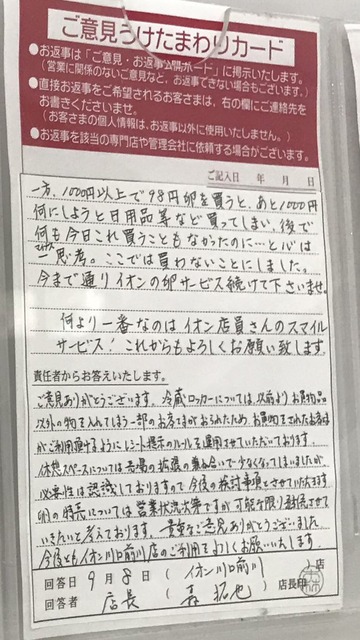 ご意見うけたまわりカード
●お返事は「ご意見・お返事公開ボード」に掲示いたします。
（営業に関係のないご意見など、お返事できない場合もございます。）
●直接お返事をご希望されるお客さまは、右の欄にご連絡先を
お書きくださいませ。
（お客さまの個人情報は、お返事以外に使用いたしません。）
●お返事を該当の専門店や管理会社に依頼する場合がございます。
ご記入日 年 月 日
一方、1000円以上で98円卵を買うと、あと1000円
何にしようと日用品等など買ってしまい、後で
何も今日これ買うこともなかったのに…と心は
思考。ここでは買わないことにしました。
今まで通りイオンの卵サービス続けて下さいませ。
何より一番なのはイオン店員さんのスマイル
サービス！これからもよろしくお願い致します。
責任者からお答えいたします。
ご意見ありがとうございます。冷蔵ロッカーについては、以前よりお買物品
以外の物を入れてしまう一部のお客さまがおられたため、お買物をされたお客さま
がご利用頂けるようにレシート提示のルールを運用させていただいております。
休憩スペースについては売場の拡張の兼ね合いで少なくなってしまいましたが、
必要性は認識しておりますので今後の検討事項とさせていただきます
卵の特売については営業状況次第ですが可能な限り継続させて
いきたいと考えております。貴重なご意見ありがとうございました
今後ともイオン川口前川店のご利用をよろしくお願いいたします。
回答日 9月8日（イオン川口前川）店
回答者 店長 森 拓也 店長印